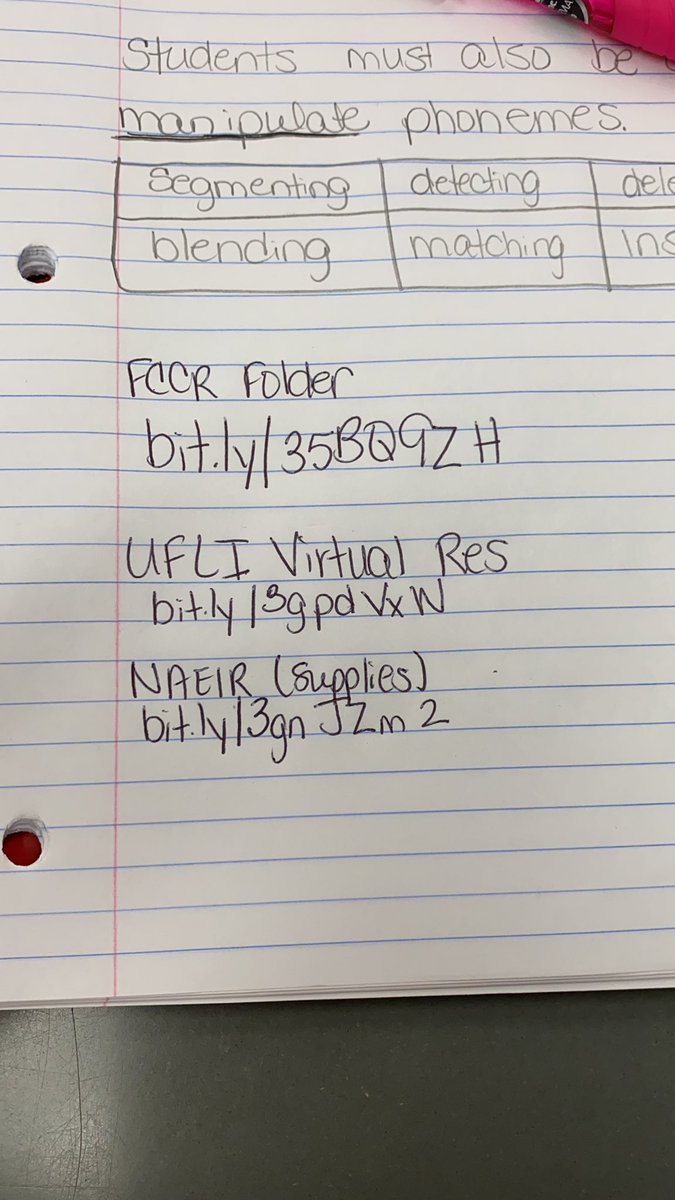 Students must also be
manipulate phonemes.
Segmenting detecting
blending matching
FCCR Folder
bit.ly/35BQ9ZH
UFLI Virtual Res
bit.ly/3gpdVxW
NAEIR (supplies)
bit.ly/3gnJZm2